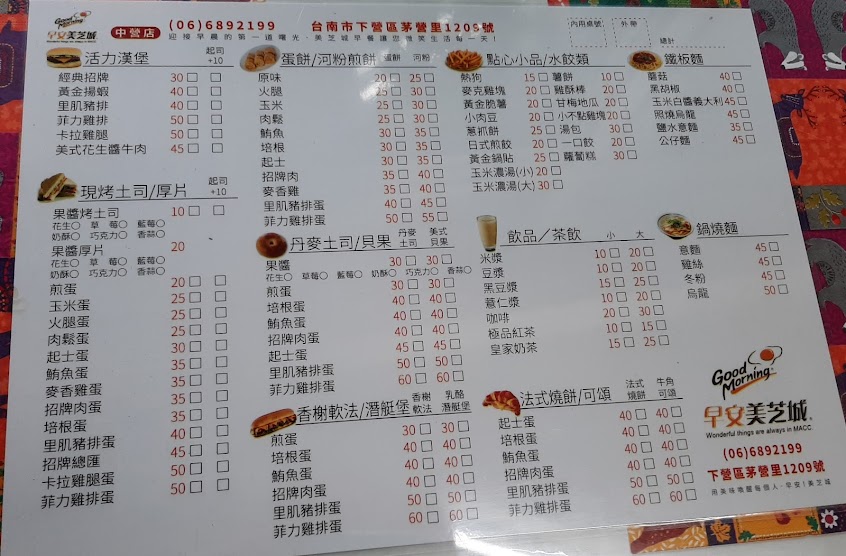 Good Morning
早安美芝城
中營店
(06)6892199 台南市下營區茅營里1209號
迎接早晨的第一道曙光，美芝城早餐讓您微笑生活每一天！
內用桌號 外帶
總計
活力漢堡 起司+10
經典招牌 30
黃金揚蝦 40
里肌豬排 40
菲力雞排 50
卡拉雞腿 50
美式花生醬牛肉 45
現烤土司/厚片 起司+10
果醬烤土司 10
花生○ 草莓○ 藍莓○
奶酥○ 巧克力○ 香蒜○
果醬厚片 20
花生○ 草莓○ 藍莓○
奶酥○ 巧克力○ 香蒜○
煎蛋 20
玉米蛋 25
火腿蛋 25
肉鬆蛋 25
起士蛋 30
鮪魚蛋 35
麥香雞蛋 35
招牌肉蛋 35
培根蛋 35
里肌豬排蛋 40
招牌總匯 45
卡拉雞腿蛋 50
菲力雞排蛋 50
蛋餅/河粉煎餅 蛋餅 河粉
原味 20 25
火腿 25 30
玉米 25 30
肉鬆 25 30
鮪魚 30 35
培根 30 35
起士 30 35
招牌肉 35 40
麥香雞 35 40
里肌豬排蛋 40 45
菲力雞排蛋 50 55
丹麥土司/貝果 丹麥土司 美式貝果
果醬 30 30
花生○ 草莓○ 藍莓○ 奶酥○ 巧克力○ 香蒜○
煎蛋 30 30
培根蛋 40 40
鮪魚蛋 40 40
招牌肉蛋 40 40
起士蛋 45 45
里肌豬排蛋 50 50
菲力雞排蛋 60 60
香榭軟法/潛艇堡 香榭軟法 乳酪潛艇堡
煎蛋 30 30
培根蛋 40 40
鮪魚蛋 40 40
招牌肉蛋 40 40
里肌豬排蛋 50 50
菲力雞排蛋 60 60
點心小品/水餃類
熱狗 15 薯餅 10
麥克雞塊 20 雞酥棒 20
黃金脆薯 20 甘梅地瓜 20
小肉豆 20 小不點雞塊 20
蔥抓餅 25 湯包 30
日式煎餃 25 一口餃 20
黃金鍋貼 25 蘿蔔糕 30
玉米濃湯(小) 20
玉米濃湯(大) 30
飲品/茶飲 小 大
米漿 10 20
豆漿 10 20
黑豆漿 15 25
薏仁漿 10 20
咖啡 20 30
極品紅茶 10 15
皇家奶茶 15 25
法式燒餅/可頌 法式燒餅 牛角可頌
起士蛋 40 40
培根蛋 40 40
鮪魚蛋 40 40
招牌肉蛋 40 40
里肌豬排蛋 50 50
菲力雞排蛋 60 60
鐵板麵
蘑菇 40
黑胡椒 40
玉米白醬義大利 45
照燒烏龍 45
鹽水意麵 35
公仔麵 45
鍋燒麵
意麵 45
雞絲 45
冬粉 45
烏龍 50
Good Morning
早安美芝城
Wonderful things are always in MACC.
(06)6892199
下營區茅營里1209號
用美味喚醒每個人，早安！美芝城